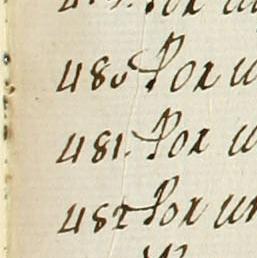 480 Por u
481. Por u
482 Por un